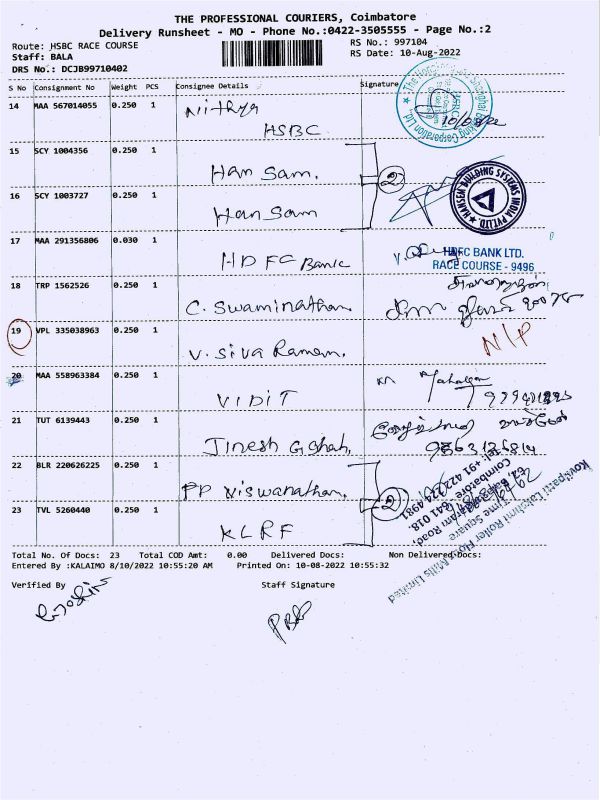 THE PROFESSIONAL COURIERS, Coimbatore
Delivery Runsheet - MO - Phone No.:0422-3505555 - Page No.:2
Route: HSBC RACE COURSE
RS No.: 997104
Staff: BALA
RS Date: 10-Aug-2022
DRS No.: DCJB99710402
S No Consignment No Weight PCS Consignee Details Signature
14 MAA 567014055 0.250 1 Nithya
HSBC 10/08/22
15 SCY 1004356 0.250 1
Han Sam.
2
16 SCY 1003727 0.250 1
Han Sam
HANSEN BUILDING SYSTEMS INDIA PVT LTD
17 MAA 291356806 0.030 1
HDFC Bank
HDFC BANK LTD.
RACE COURSE - 9496
18 TRP 1562526 0.250 1
C. Swaminathan
19 VPL 335038963 0.250 1
V. Siva Raman.
N/P
20 MAA 558963384 0.250 1
VIDIT
21 TUT 6139443 0.250 1
Jinesh G Shah,
22 BLR 220626225 0.250 1
PP Viswanathan.
2
23 TVL 5260440 0.250 1
KLRF
Kovilpatti Lakshmi Roller Flour Mills Limited
Time Square
Coimbatore 641 018.
Total No. Of Docs: 23 Total COD Amt: 0.00 Delivered Docs: Non Delivered Docs:
Entered By :KALAIMO 8/10/2022 10:55:20 AM Printed On: 10-08-2022 10:55:32
Verified By Staff Signature